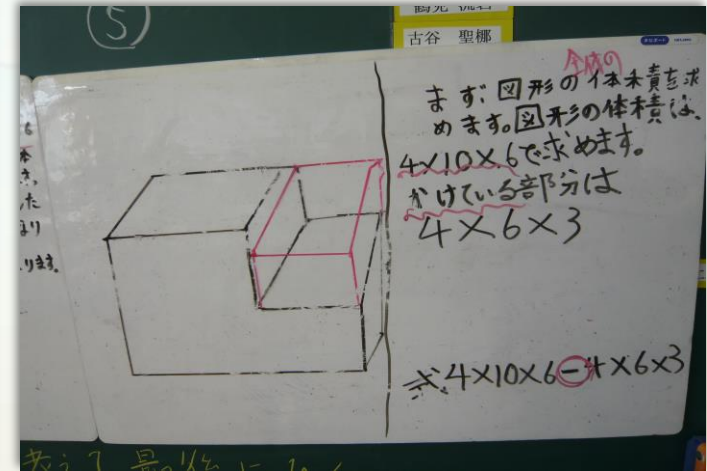 ⑤
古谷 聖梛
全体の
まず、図形の体積を求
めます。図形の体積は、
4×10×6で求めます。
かけている部分は
4×6×3
式4×10×6－4×6×3
った
ります。
考えて